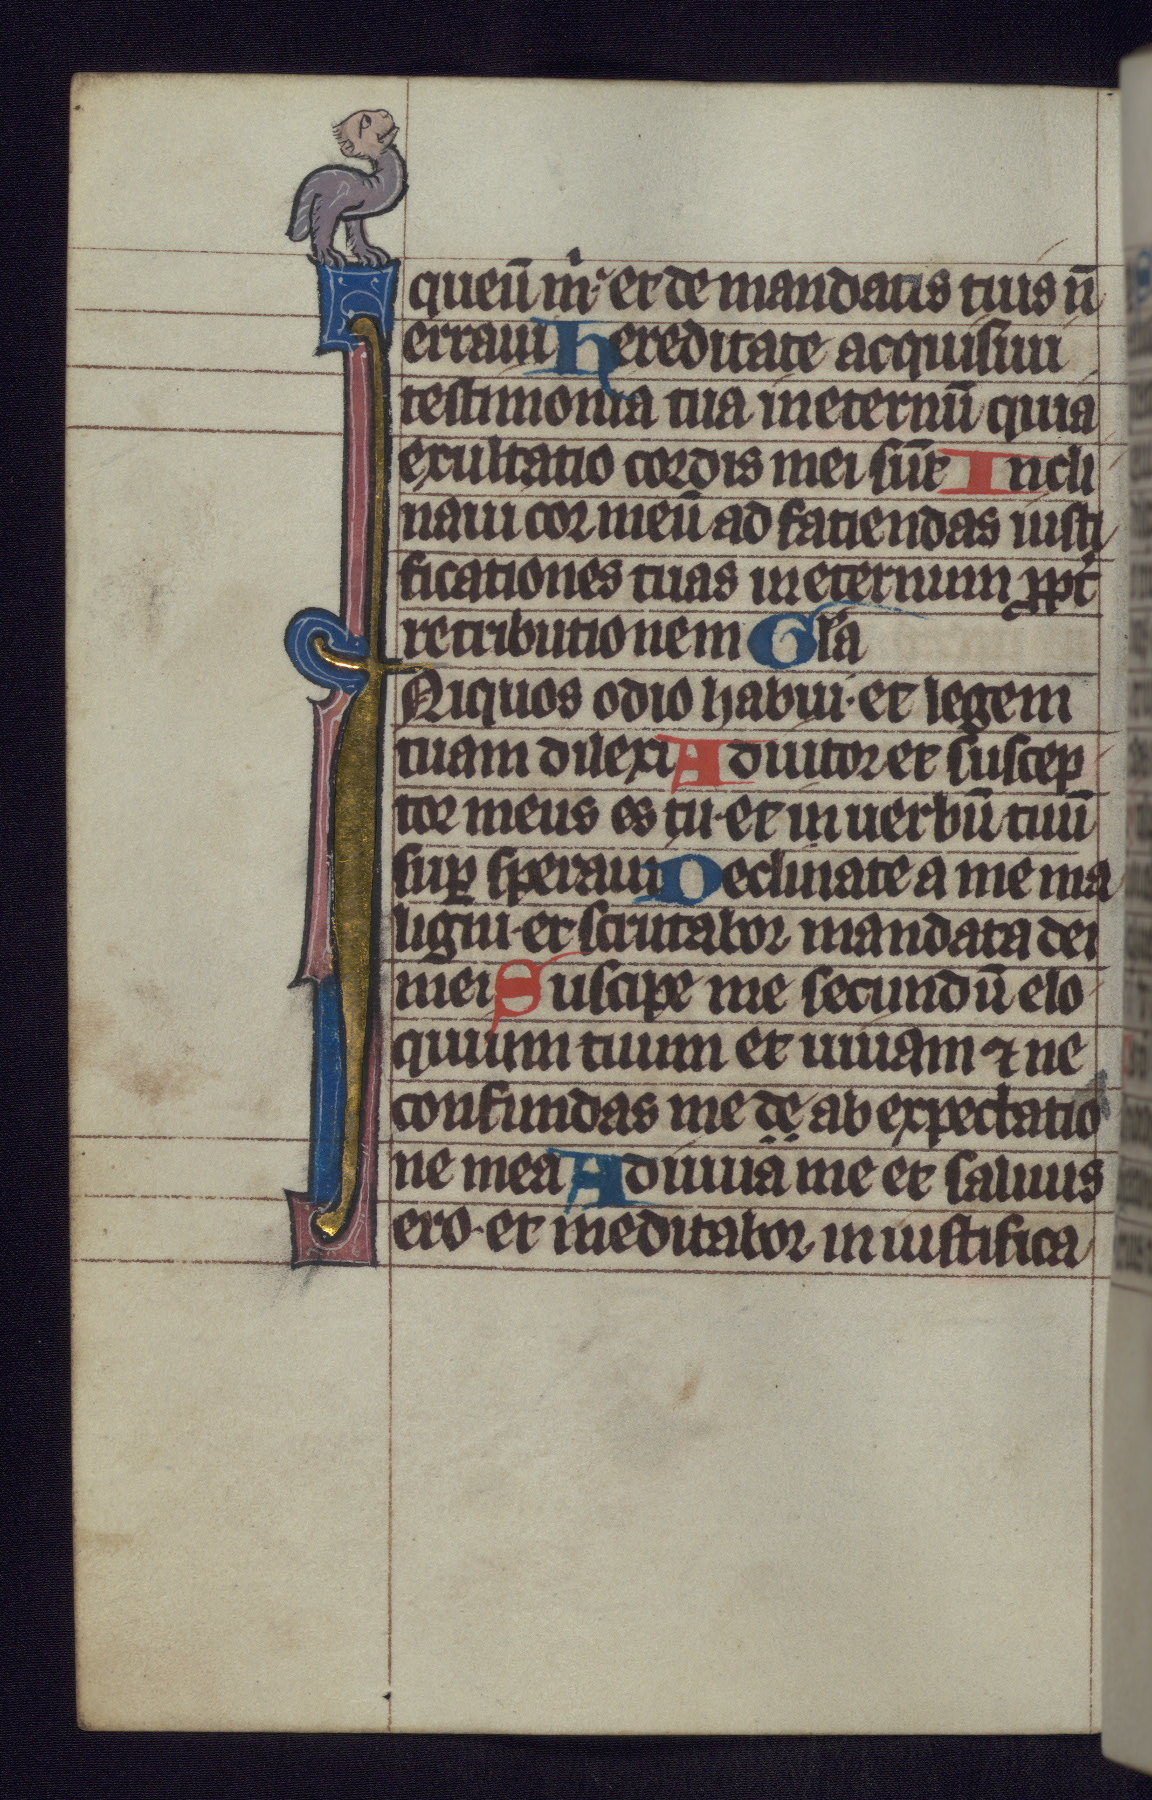 queū m̄ et de mandatis tuis n̄
erraui Hereditate acquisiui
testimonia tua in eternū quia
exultatio cordis mei sūt Incli
naui cor meū ad fatiendas iusti
ficationes tuas in eternum ꝓpt̄
retributionem Gl̄a
Niquos odio habui · et legem
tuam dilexi Adiutor et suscep
tor meus es tu · et in uerbū tuū
suꝑ speraui Declinate a me ma
ligni · et scrutabor mandata dei
mei Suscipe me secundū elo
quium tuum et uiuam ⁊ ne
confundas me de ab expectatio
ne mea Adiuuā me et saluus
ero · et meditabor in iustifica